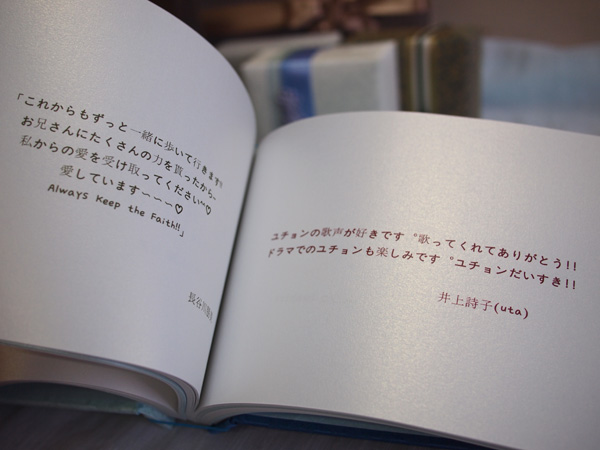 「これからもずっと一緒に歩いて行きます!!
お兄さんにたくさんの力を貰ったから~
私からの愛を受け取ってください^^♡
愛しています~~~♡
Always Keep the Faith!!」
長谷川
ユチョンの歌声が好きです゜歌ってくれてありがとう!!
ドラマでのユチョンも楽しみです゜ユチョンだいすき!!
井上詩子(uta)